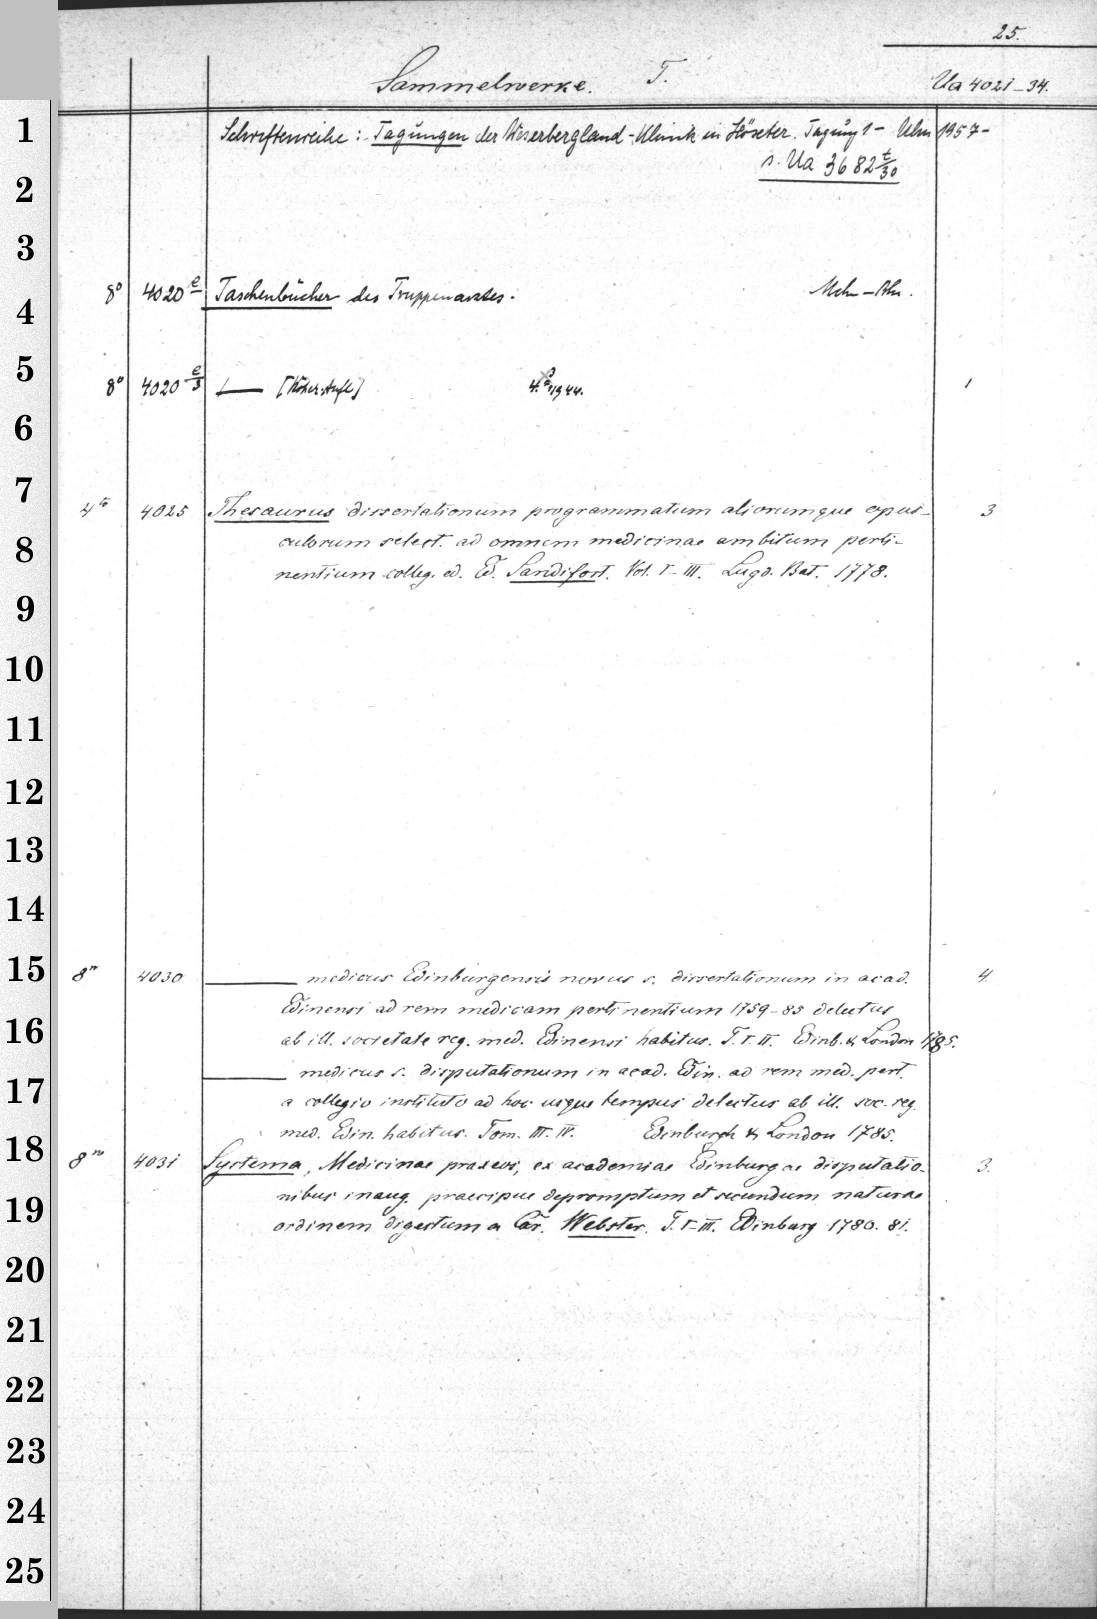 25.
Sammelwerke. T. Ua 4021-34.
1
Schriftenreihe: Tagungen der Weserbergland-Klinik in Höxter. Tagung 1- Ulm 1957-
s. Ua 3682 t/30
2
3
8° 4020 e Taschenbücher des Truppenarztes.
4
5
8° 4020 e/3 [Höher. Aufl] 4. 1944. 1
6
7
4to 4025 Thesaurus dissertationum programmatum aliorumque opus- 3
8
culorum select. ad omnem medicinae ambitum perti-
nentium colleg. ed. Ed. Sandifort. Vol. I-III. Lugd. Bat. 1778.
9
10
11
12
13
14
15
8vo 4030 ——— medicus Edinburgensis novus s. dissertationum in acad. 4.
Edinensi ad rem medicam pertinentium 1759-85 delectus
16
ab ill. societate reg. med. Edinensi habitus. T. I. II. Edinb. & London 1785.
17
——— medicus s. disputationum in acad. Edin. ad rem med. pert.
a collegio instituto ad hoc usque tempus delectus ab ill. soc. reg.
med. Edin. habitus. Tom. III. IV. Edinburgh & London 1785.
18
8vo 4031 Systema, Medicinae praxeos, ex academiae Edinburgae disputatio- 3.
nibus inaug. praecipue depromptum et secundum naturae
19
ordinem digestum a Car. Webster. T. I-III. Edinburg 1780. 81.
20
21
22
23
24
25